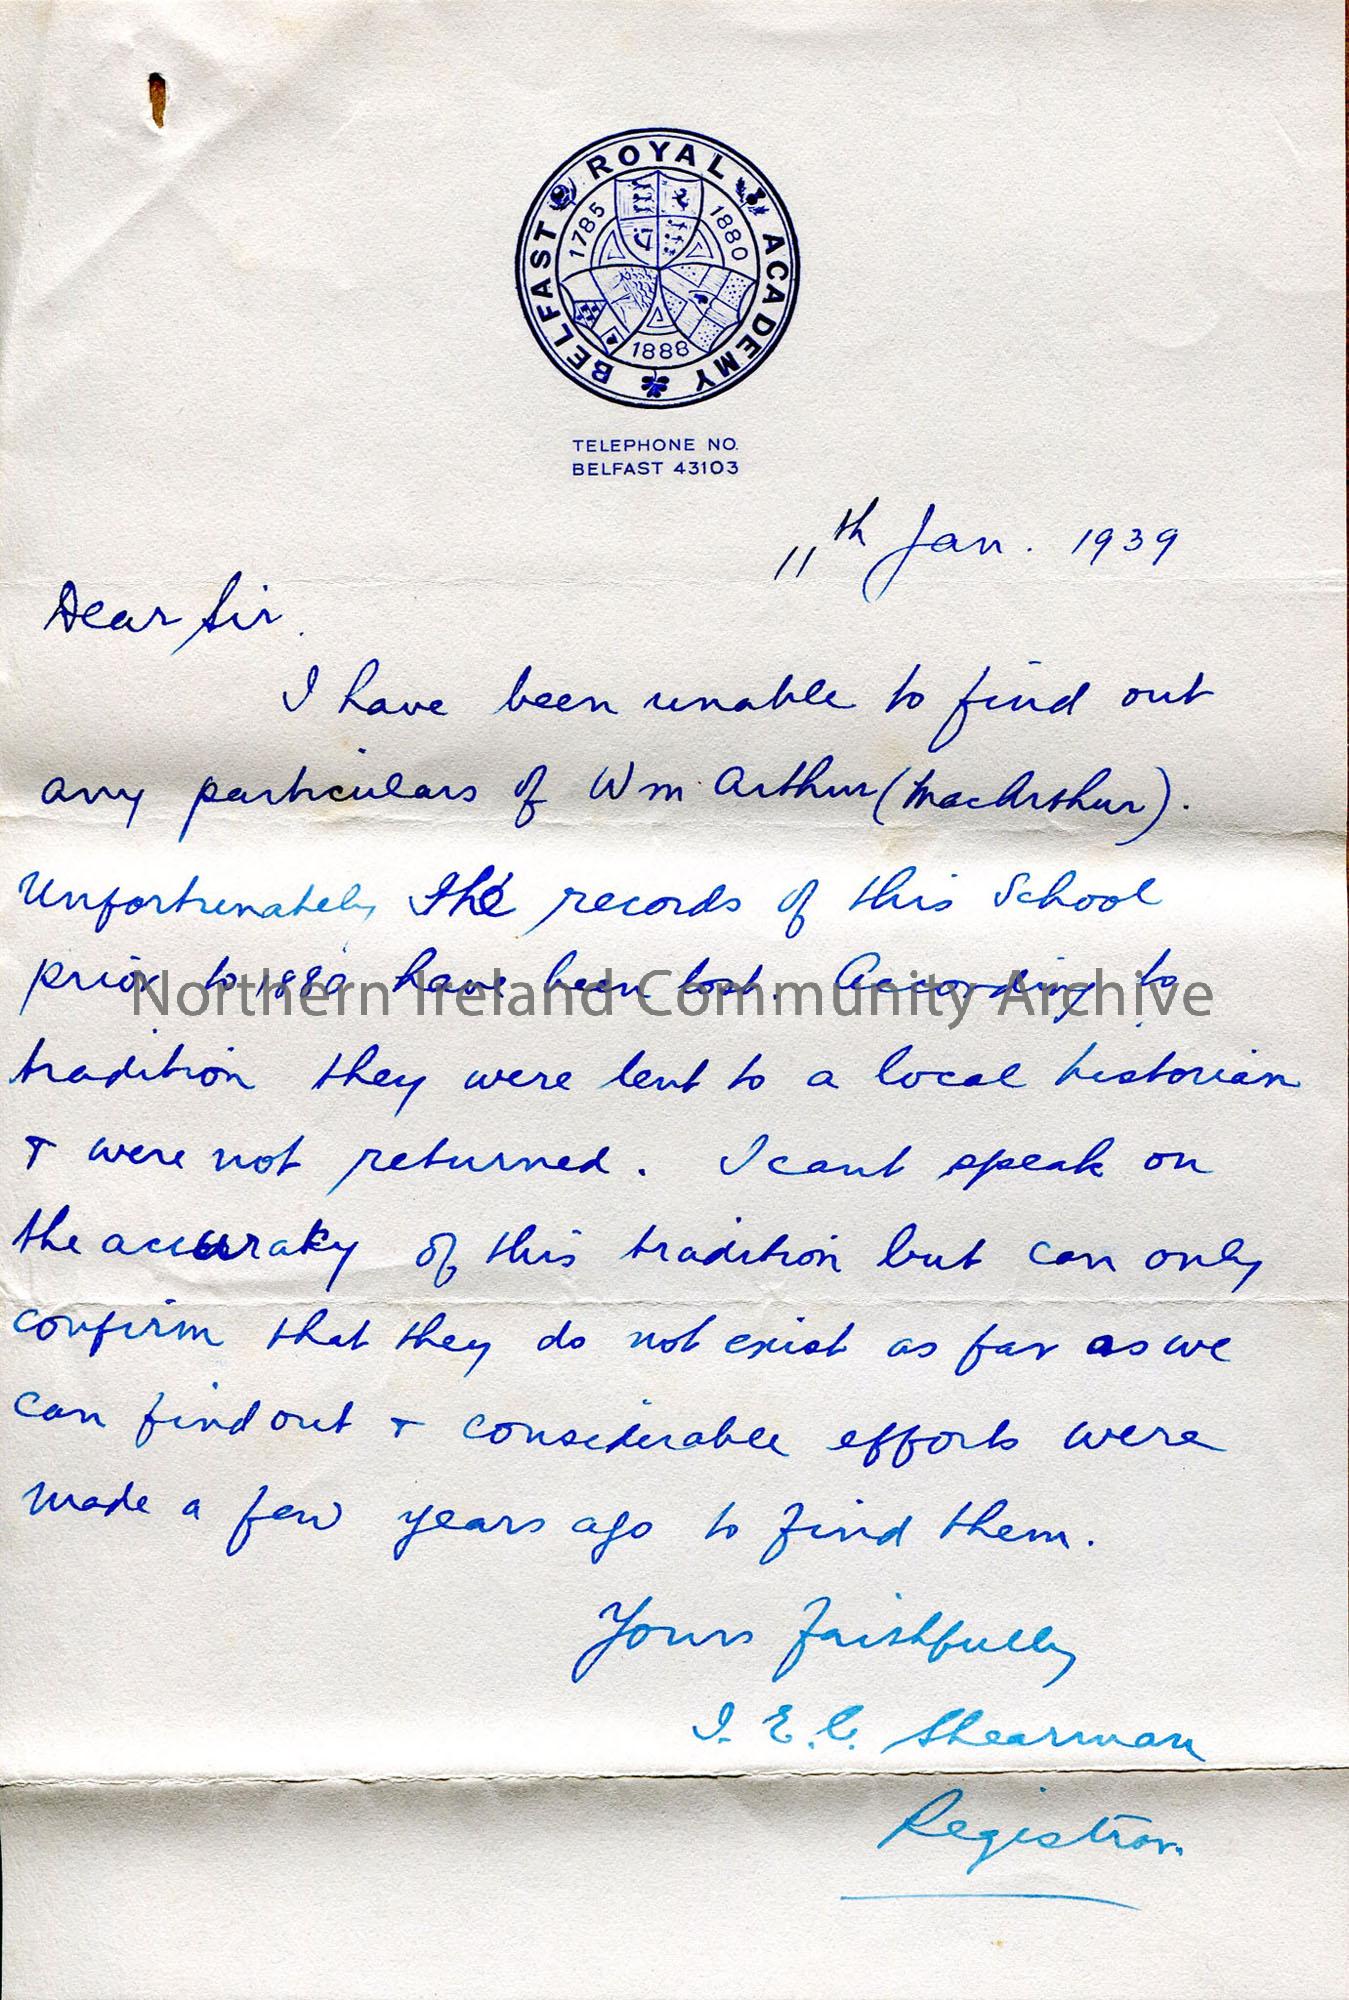 BELFAST ROYAL ACADEMY
1785 1880
1888
TELEPHONE NO.
BELFAST 43103
11th Jan. 1939
Dear Sir.
I have been unable to find out
any particulars of Wm Arthur (MacArthur).
Unfortunately the records of this School
prior to 1880 have been lost. According to
Northern Ireland Community Archive
tradition they were lent to a local historian
+ were not returned. I cant speak on
the accuraky of this tradition but can only
confirm that they do not exist as far as we
can find out + considerable efforts were
made a few years ago to find them.
Yours faithfully
I. E. C. Shearman
Registrar.